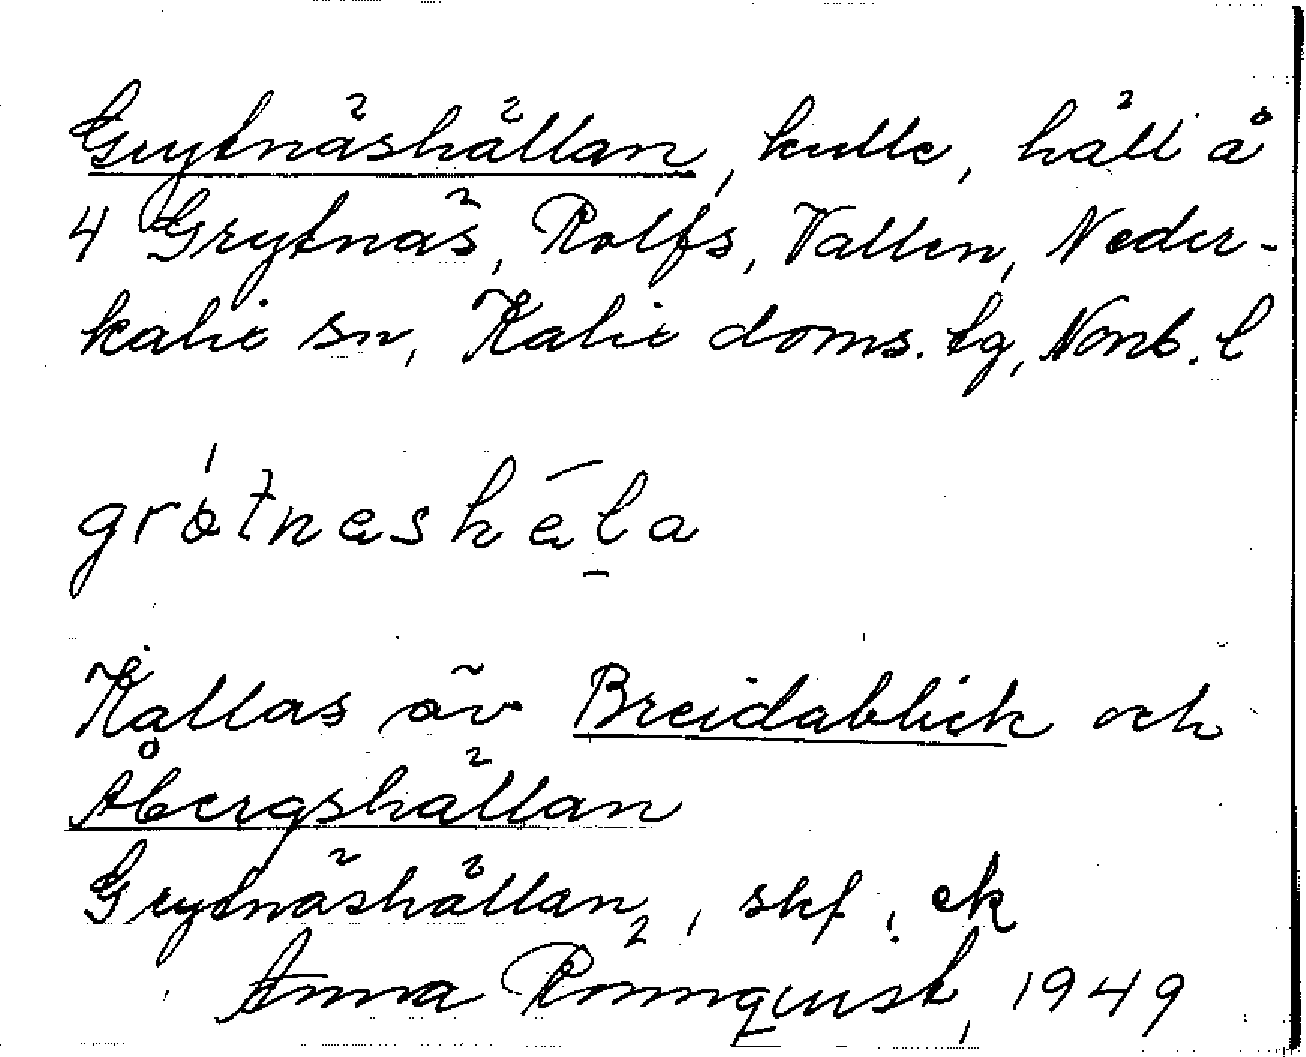 Grytnäshällan, kulle, häll å
4 Grytnäs, Rolfs, Vallen, Neder-
kalix sn, Kalix doms. tg, Norrb. l
grøtnæshæ̅l̠a
Kallas äv Breidablick och
Åbergshällan
Grytnäshällan, skf, ek
Anna Rönnquist, 1949